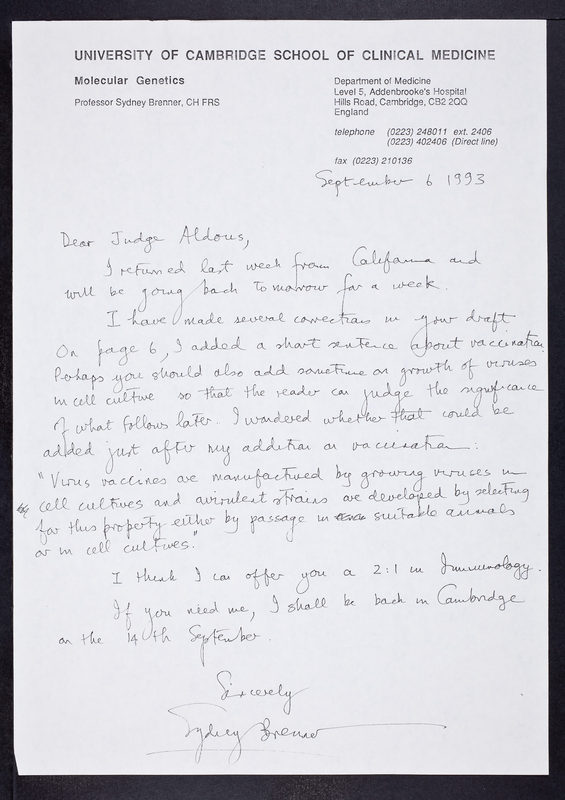 UNIVERSITY OF CAMBRIDGE SCHOOL OF CLINICAL MEDICINE
Molecular Genetics
Professor Sydney Brenner, CH FRS
Department of Medicine
Level 5, Addenbrooke's Hospital
Hills Road, Cambridge, CB2 2QQ
England
telephone (0223) 248011 ext. 2406
(0223) 402406 (Direct line)
fax (0223) 210136
September 6 1993
Dear Judge Aldous,
I returned last week from California and
will be going back tomorrow for a week.
I have made several corrections in your draft
On page 6, I added a short sentence about vaccination
Perhaps you should also add something on growth of viruses
in cell culture so that the reader can judge the significance
of what follows later. I wondered whether that could be
added just after my addition on vaccination:
"Virus vaccines are manufactured by growing viruses in
cell cultures and avirulent strains are developed by selecting
for this property either by passage in suitable animals
or in cell cultures."
I think I can offer you a 2:1 in Immunology.
If you need me, I shall be back in Cambridge
on the 14th September.
Sincerely
Sydney Brenner